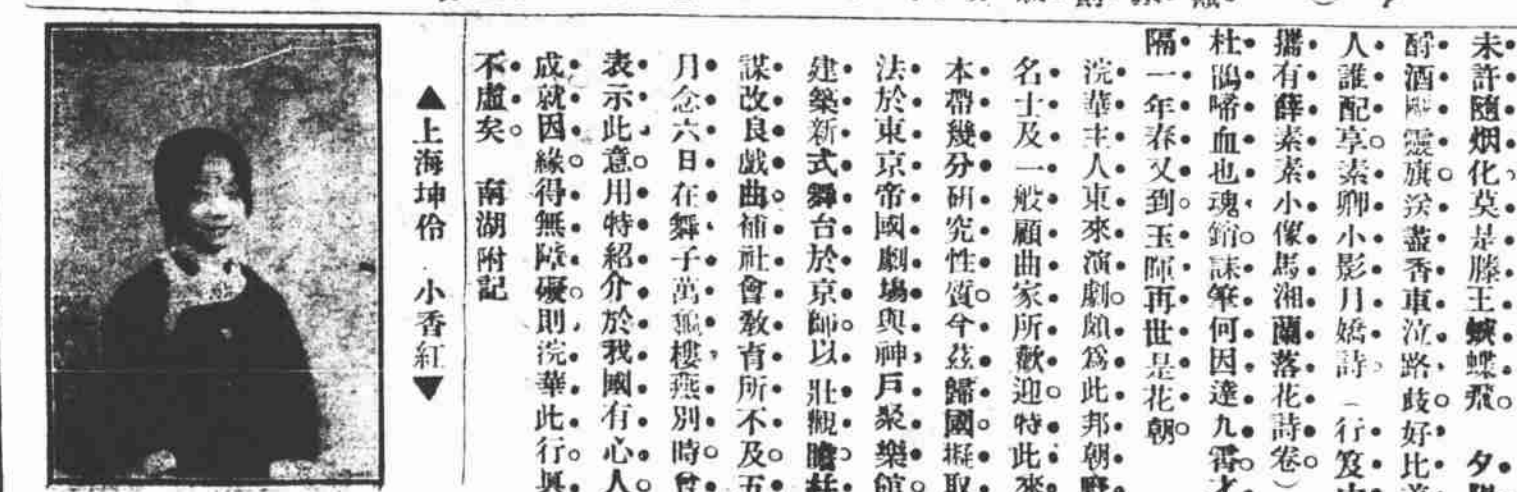 未許隨烟化莫是滕王蛺蝶飛。　夕
酹酒靈旗淚盡香車泣路歧好比
人誰配享素卿小影月嬌詩（行笈
攜有薛素素小像馬湘蘭落花詩卷）
杜鵑啼血也魂銷誄筆何因達九霄才
隔一年春又到玉隕再世是花朝
浣華主人東來演劇頗爲此邦朝野
名士及一般顧曲家所歡迎特此來
本帶幾分研究性質今茲歸國擬取
法於東京帝國劇場與神戶聚樂館
建築新式舞台於京師以壯觀瞻
謀改良戲曲補社會教育所不及五
月念六日在舞子萬龜樓燕別時曾
表示此意用特紹介於我國有心人
成就因緣得無障礙則浣華此行具
不虛矣。　南湖附記
▲上海坤伶　小香紅▼